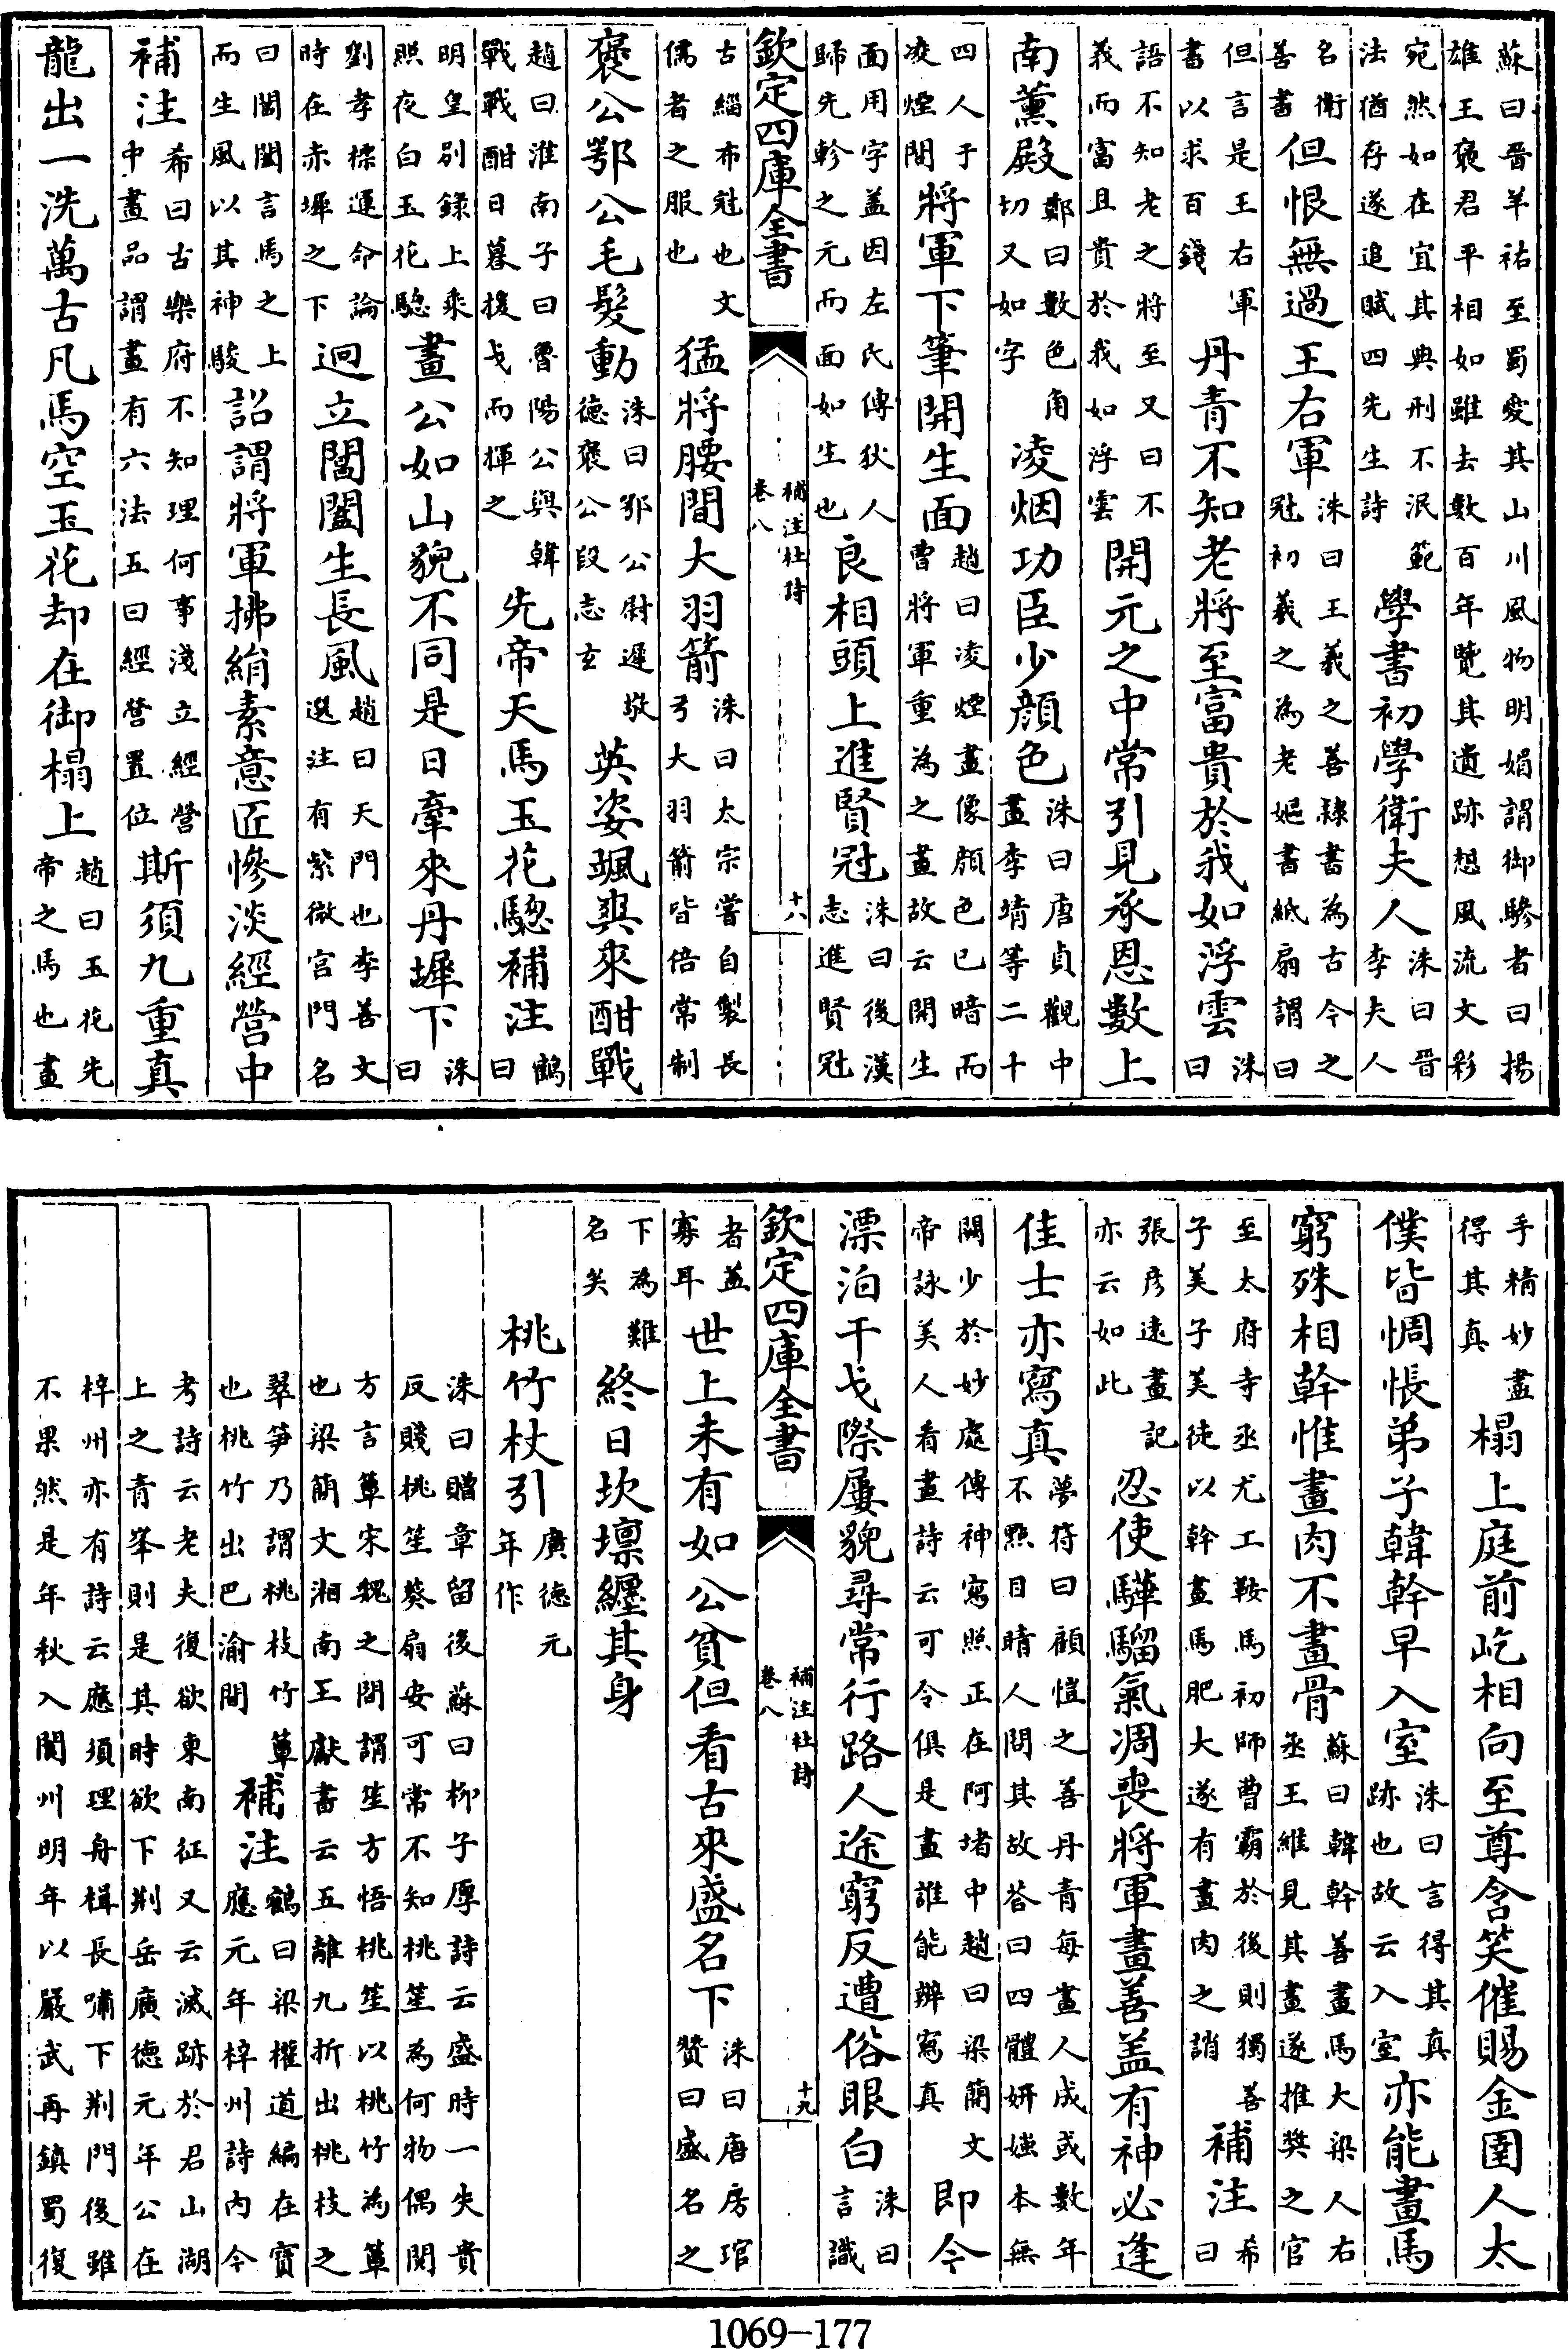 蘇曰晉羊祜至蜀愛其山川風物明媚謂御驂者曰揚
雄王褒君平相如雖去數百年覽其遺跡想風流文彩
宛然如在宜其典刑不泯範
法猶存遂追賦四先生詩
學書初學衛夫人
洙曰晉
李夫人
名衛
善書
但恨無過王右軍
洙曰王羲之善隸書為古今之
冠初羲之為老嫗書紙扇謂曰
但言是王右軍
書以求百錢
丹青不知老將至富貴於我如浮雲
洙
曰
語不知老之將至又曰不
義而富且貴於我如浮雲
開元之中常引見承恩數上
南薰殿
鄭曰數色角
切又如字
凌烟功臣少顔色
洙曰唐貞觀中
畫李靖等二十
四人于
凌煙閣
將軍下筆開生面
趙曰凌煙畫像顔色已暗而
曹將軍重為之畫故云開生
面用字盖因左氏傳狄人
歸先軫之元而面如生也
良相頭上進賢冠
洙曰後漢
志進賢冠
欽定四庫全書
補注杜詩
卷八
十八
古緇布冠也文
儒者之服也
猛將腰間大羽箭
洙曰太宗嘗自製長
弓大羽箭皆倍常制
褒公鄂公毛髮動
洙曰鄂公尉遲敬
德褒公段志玄
英姿颯爽來酣戰
趙曰淮南子曰魯陽公與韓
戰戰酣日暮援戈而揮之
先帝天馬玉花驄補注
鶴
曰
明皇别錄上乘
照夜白玉花驄
畫公如山貌不同是日牽來丹墀下
洙
曰
劉孝標運命論
時在赤墀之下
迥立閶闔生長風
趙曰天門也李善文
選注有紫微宫門名
曰閶闔言馬之上
而生風以其神駿
詔謂將軍拂絹素意匠慘淡經營中
補注
希曰古樂府不知理何事淺立經營
中畫品謂畫有六法五曰經營置位
斯須九重真
龍出一洗萬古凡馬空玉花却在御榻上
趙曰玉花先
帝之馬也畫
手精妙盡
得其真
榻上庭前屹相向至尊含笑催賜金圉人太
僕皆惆悵弟子韓幹早入室
洙曰言得其真
跡也故云入室
亦能畫馬
窮殊相幹惟畫肉不畫骨
蘇曰韓幹善畫馬大梁人右
丞王維見其畫遂推奬之官
至太府寺丞尤工鞍馬初師曹霸於後則獨善
子美子美徒以幹畫馬肥大遂有畫肉之誚
補注
希
曰
張彦遠畫記
亦云如此
忍使驊騮氣凋喪將軍畫善盖有神必逢
佳士亦寫真
夢符曰顧愷之善丹青每畫人成或數年
不點目睛人問其故荅曰四體妍媸本無
闗少於妙處傳神寫照正在阿堵中趙曰梁簡文
帝詠美人看畫詩云可令俱是畫誰能辨寫真
即今
漂泊干戈際屢貌尋常行路人途窮反遭俗眼白
洙曰
言識
欽定四庫全書
補注杜詩
卷八
十九
者盖
寡耳
世上未有如公貧但看古來盛名下
洙曰唐房琯
贊曰盛名之
下為難
名矣
終日坎壈纒其身
桃竹杖引
廣德元
年作
洙曰贈章留後蘇曰栁子厚詩云盛時一失貴
反賤桃笙葵扇安可常不知桃笙為何物偶閲
方言簟宋魏之間謂笙方悟桃笙以桃竹為簟
也梁簡文湘南王獻書云五離九折出桃枝之
翠笋乃謂桃枝竹簟
也桃竹出巴渝間
補注
鶴曰梁權道編在寳
應元年梓州詩内今
考詩云老夫復欲東南征又云滅跡於君山湖
上之青峯則是其時欲下荆岳廣德元年公在
梓州亦有詩云應須理舟楫長嘯下荆門後雖
不果然是年秋入閬州明年以嚴武再鎮蜀復
1069-177